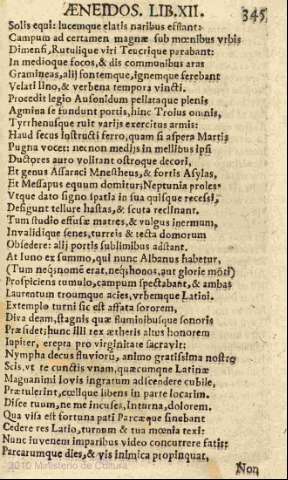 ÆNEIDOS. LIB.XII. 345
Solis equi: lucemque elatis naribus efflant:
Campum ad certamen magnæ sub mœnibus vrbis
Dimensi, Rutulique viri Teucrique parabant:
In medioque focos, & dis communibus aras
Gramineas, alij fontemque, ignemque ferebant
Velati lino, & verbena tempora vincti.
Procedit legio Ausonidum pellataque plenis
Agmina se fundunt portis, hinc Troius omnis,
Tyrrhenusque ruit varijs exercitus armis:
Haud secus instructi ferro, quam si aspera Martis
Pugna vocet: necnon medijs in millibus ipsi
Ductores auro volitant ostroque decori,
Et genus Assaraci Mnestheus, & fortis Asylas,
Et Messapus equum domitur; Neptunia proles.
Vtque dato signo spatia in sua quisque recessi,
Desigunt tellure hastas, & scuta reclinant.
Tum studio effusæ matres, & vulgus inermum,
Inualidique senes, turreis & tecta domorum
Obsedere: alij portis sublimibus adstant.
At Iuno ex summo, qui nunc Albanus habetur,
(Tum neq; nomē erat, neq; honos, aut gloria mōti)
Prospiciens tumulo, campum spectabant, & ambas
Laurentum troumque acies, vrbemque Latini.
Extemplo turni sic est affata sororem,
Diua deam, stagnis quæ fluminibusque sonoris
Præsidet; hunc illi rex ætheris altus honorem
Iupiter, erepta pro virginitate sacrauit:
Nympha decus fluuiorū, animo gratissima nostro
Scis, vt te cunctis vnam, quæcumque Latinæ
Magnanimi Iouis ingratum adscendere cubile,
Prætulerint, cœlique libens in parte locarim.
Disce tuum, ne me incuses, Inturna, dolorem.
Qua visa est fortuna pati Parcæque sinebant
Cedere res Latio, turnum & tua mœnia texi:
Nunc iuuenem imparibus video concurrere fatis:
Parcarumque dies, & vis inimica propinquat,
Non
2010 Ministerio de Cultura